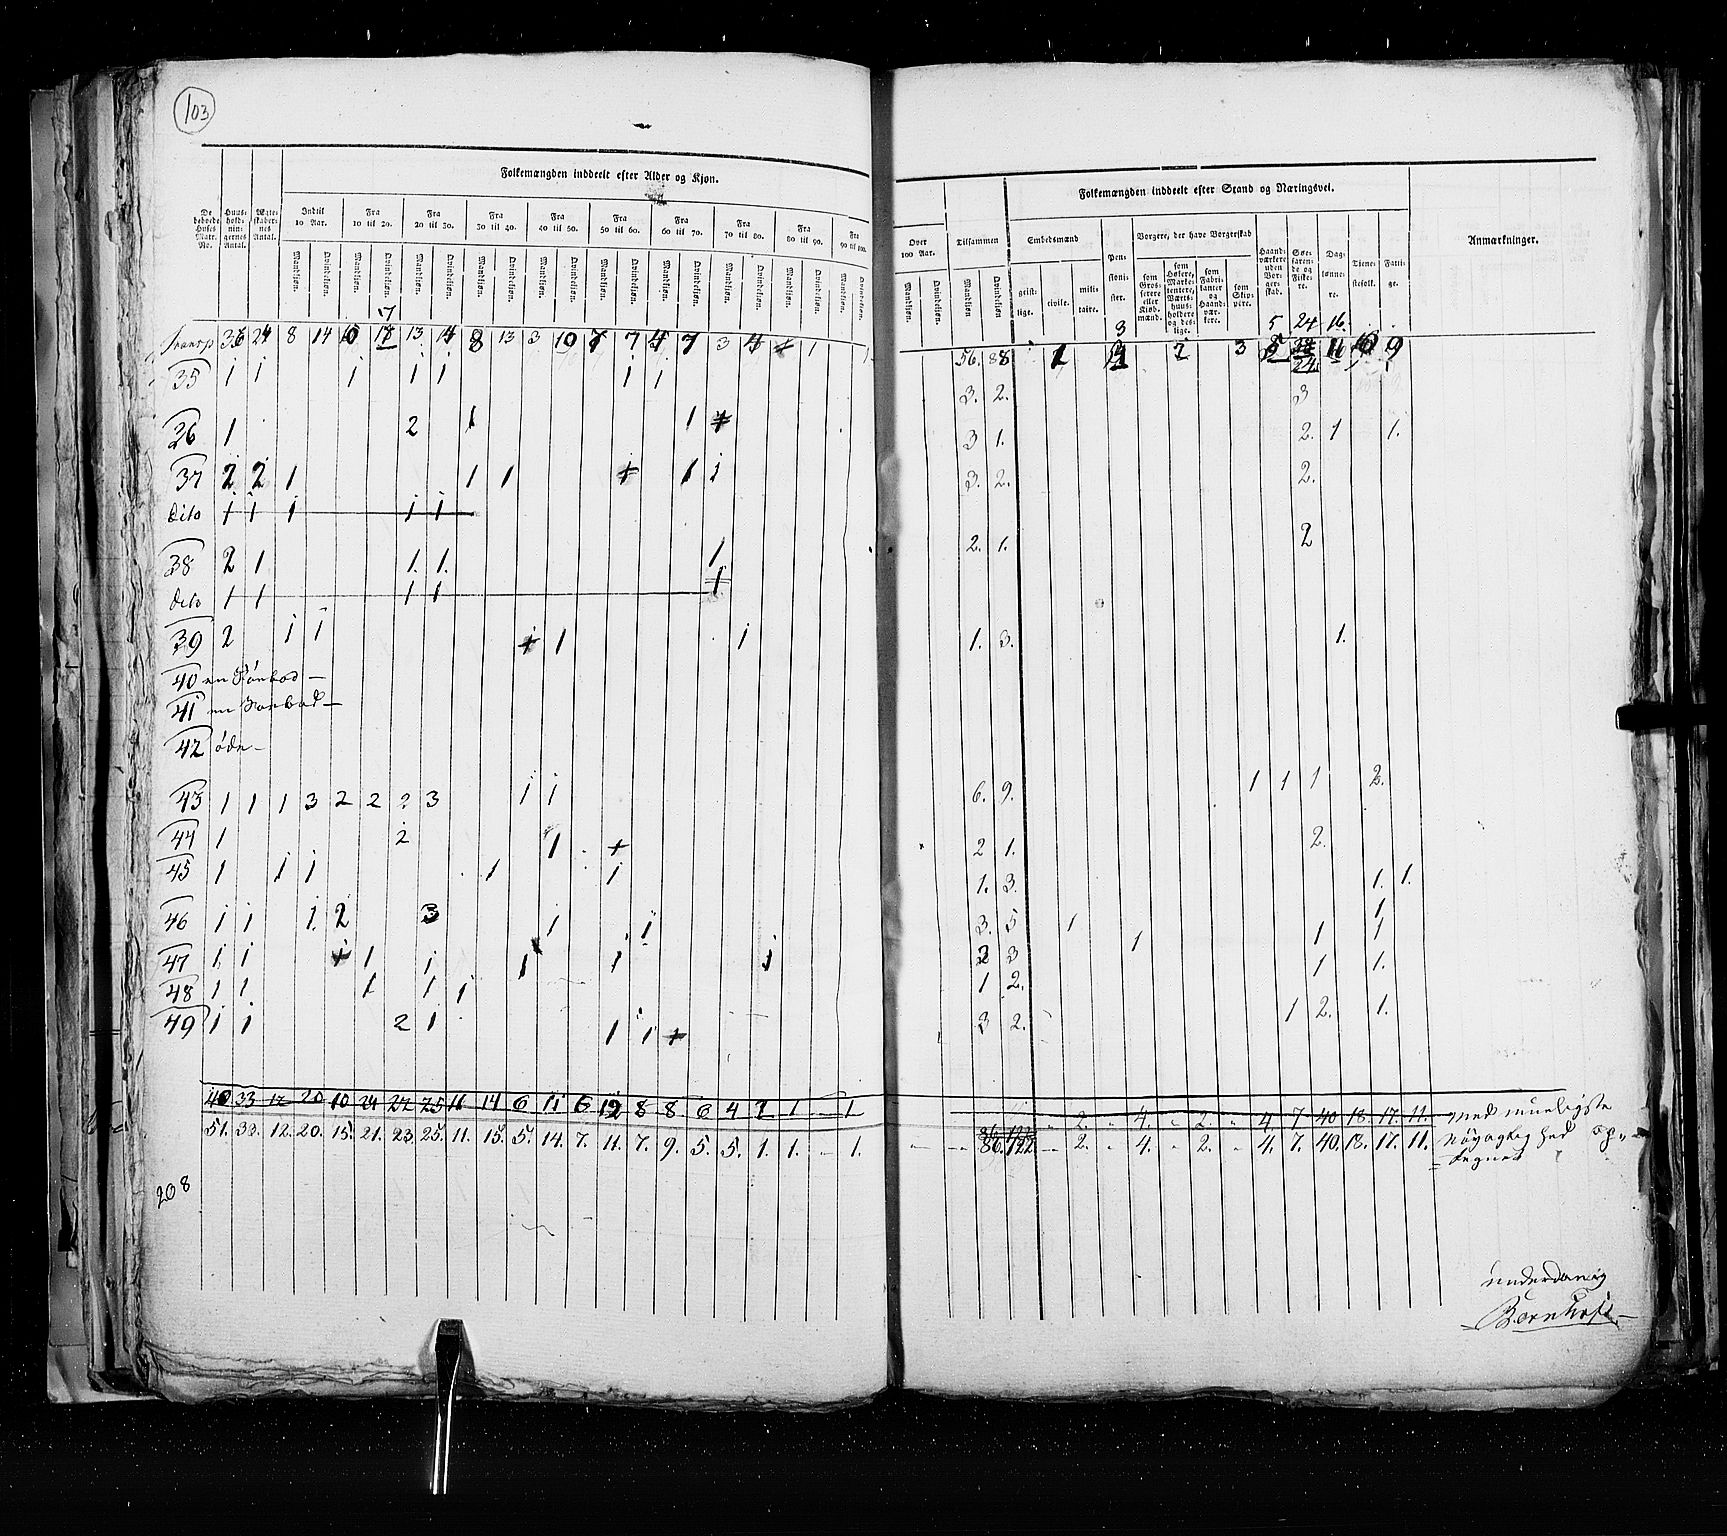 103
Folkemængden inddeelt efter Alder og Kjøn.
De beboede Huses Matr. No. Huusholdningernes Antal. Ægteskabernes Antal. Indtil 10 Aar. Fra 10 til 20. Fra 20 til 30. Fra 30 til 40. Fra 40 til 50. Fra 50 til 60. Fra 60 til 70. Fra 70 til 80. Fra 80 til 90. Fra 90 til 100.
Mandkjøn. Qvindekjøn. Mandkjøn. Qvindekjøn. Mandkjøn. Qvindekjøn. Mandkjøn. Qvindekjøn. Mandkjøn. Qvindekjøn. Mandkjøn. Qvindekjøn. Mandkjøn. Qvindekjøn. Mandkjøn. Qvindekjøn. Mandkjøn. Qvindekjøn. Mandkjøn. Qvindekjøn.
Transp 36 24 8 14 6 17 13 14 8 13 3 10 7 7 4 7 3 4 1 1 1
35 1 1 1 1 1 1 1
36 1 2 1 1 1
37 2 2 1 1 1 1 1 1
dito 1 1 1 1 1
38 2 1 1. 1. 1
dito 1 1 1 1 1
39 2 1 1 1 1 1
40 en
41 en
42 öde
43 1 1 1 3 2 2 2 3 1 1
44 1 2 1 1
45 1 1 1 1 1
46 1 1 1. 2 3 1 1
47 1 1 1 1 1 1 1 1
48 1 1 1 1 1
49 1 1 2 1 1 1 1
40 33 12 20 10 21 22 25 11 14 6 11 6 12 8 8 6 4 1 1 1
51. 32. 12. 20. 15. 21. 23. 25. 11. 15. 5. 14. 7. 11. 7. 9. 5. 5. 1. 1. 1.
208
Folkemængden inddeelt efter Stand og Næringsvei.
Over 100 Aar. Tilsammen Embedsmænd Pensionister. Borgere, der have Borgerskab Haandværkere uden Borgerskab. Søefarende og Fiskere. Daglønnere. Tienestefolk. Fattige. Anmærkninger.
Mandkjøn. Qvindekjøn. Mandkjøn. Qvindekjøn. geistlige. civile. militaire. som Grosserere eller Kiøbmænd. som Høkere, Marketentere, Værtshuusholdere og deslige. som Fabrikanter og Haandværkere. som Skippere.
3 5 24 16.
56. 88 1 2 3 24. 9
3. 2. 3
3 1. 2. 1 1.
3. 2. 2.
2. 1. 2
1. 3. 1.
6. 9. 1 1 1 2.
2 1. 2.
1. 3. 1. 1.
3. 5 1 1
2 3 1 1 1
1 2. 1 1.
3 2. 1 2. 1.
2. 4. 2. 4. 7 40 18. 17. 11.
86. 122 2. 4. 2. 4. 7. 40. 18. 17. 11.
med mueligste
Nöyagtighed op-
tegnet
underdanig
Bornholt